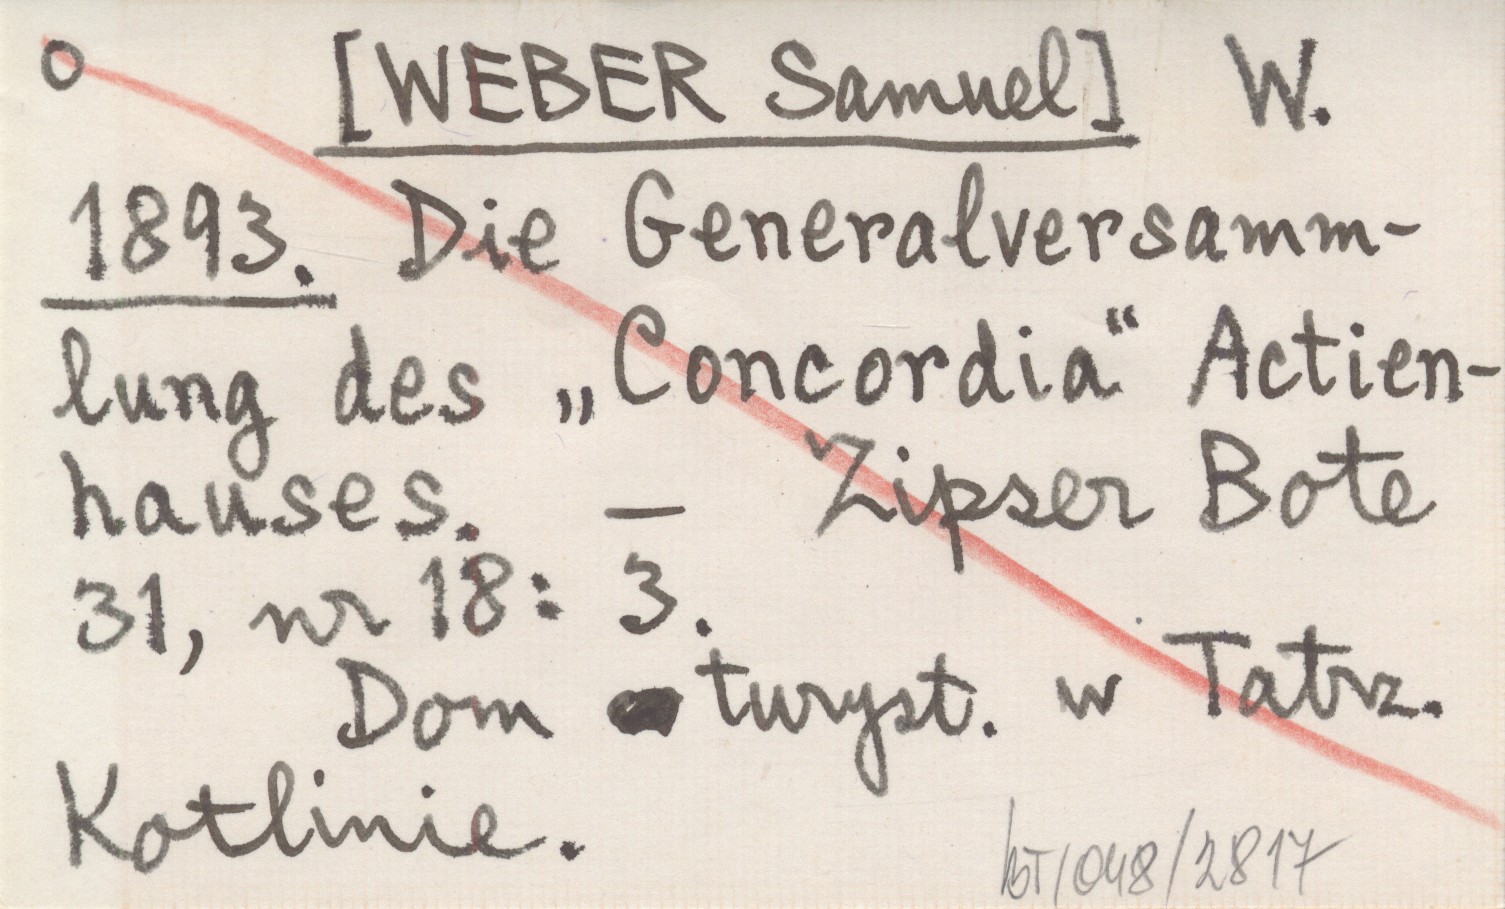 o [WEBER Samuel] W.
1893. Die Generalversamm-
lung des „Concordia“ Actien-
hauses. — Zipser Bote
31, nr 18: 3.
Dom turyst. w Tatrz.
Kotlinie.
/048/2817